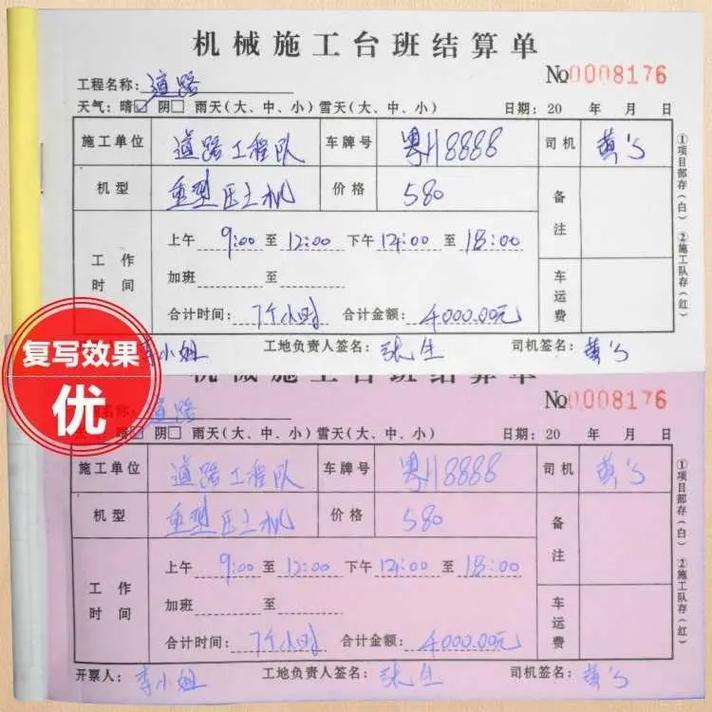 机械施工台班结算单
No 0008176
工程名称：道路
天气：晴☑ 阴☐ 雨天(大、中、小)雪天(大、中、小) 日期：20 年 月 日
施工单位 道路工程队 车牌号 8888 司机 黄
机型 重型压土机 价格 580 备注
上午 9:00 至 12:00 下午 14:00 至 18:00
工作时间 加班 至 车运费
合计时间： 7个小时 合计金额： 4000.00元
李小姐 工地负责人签名： 张生 司机签名： 黄
①项目部存(白) ②施工队存(红)
复写效果
优
机械施工台班结算单
No 0008176
名称：道路
晴☑ 阴☐ 雨天(大、中、小)雪天(大、中、小) 日期：20 年 月 日
施工单位 道路工程队 车牌号 8888 司机 黄
机型 重型压土机 价格 580 备注
上午 9:00 至 12:00 下午 14:00 至 18:00
工作时间 加班 至 车运费
合计时间： 7个小时 合计金额： 4000.00元
开票人： 李小姐 工地负责人签名： 张生 司机签名： 黄
①项目部存(白) ②施工队存(红)